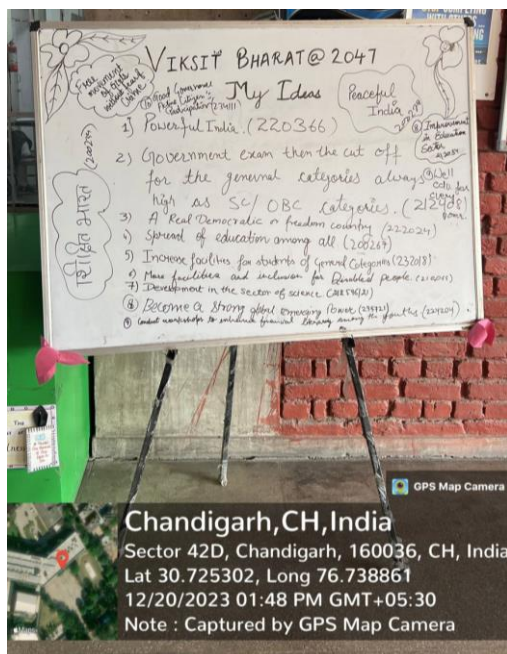 VIKSIT BHARAT@ 2047
My Ideas
Free movement of girls without fear of crime
Good Governance
Active Citizen Participation
Peaceful India
Improvement in Education Sector
शिक्षित भारत
1) Powerful India. (220366)
2) Government exam then the cut off
for the general categories always
high as SC/OBC categories.
3) A Real Democratic or freedom country (222024)
Spread of education among all (200267)
5) Increase facilities for students of General Categories (232018)
More facilities and inclusion for Disabled people.
7) Development in the sector of science
8) Become a strong global emerging Power
9) Conduct workshops to among the youths
GPS Map Camera
Chandigarh,CH,India
Sector 42D, Chandigarh, 160036, CH, India
Lat 30.725302, Long 76.738861
12/20/2023 01:48 PM GMT+05:30
Note : Captured by GPS Map Camera